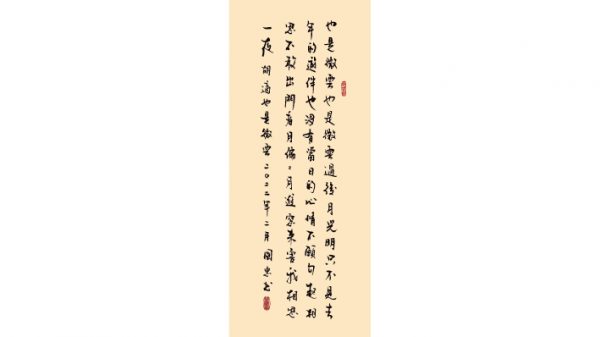 也是微雲也是微雲過後月光明只不見去
年的遊伴也沒有當日的心情不願勾起相
思不敢出門看月偏〻月進窗來害我相思
一夜 胡適也是微雲 二〇二二年二月 國